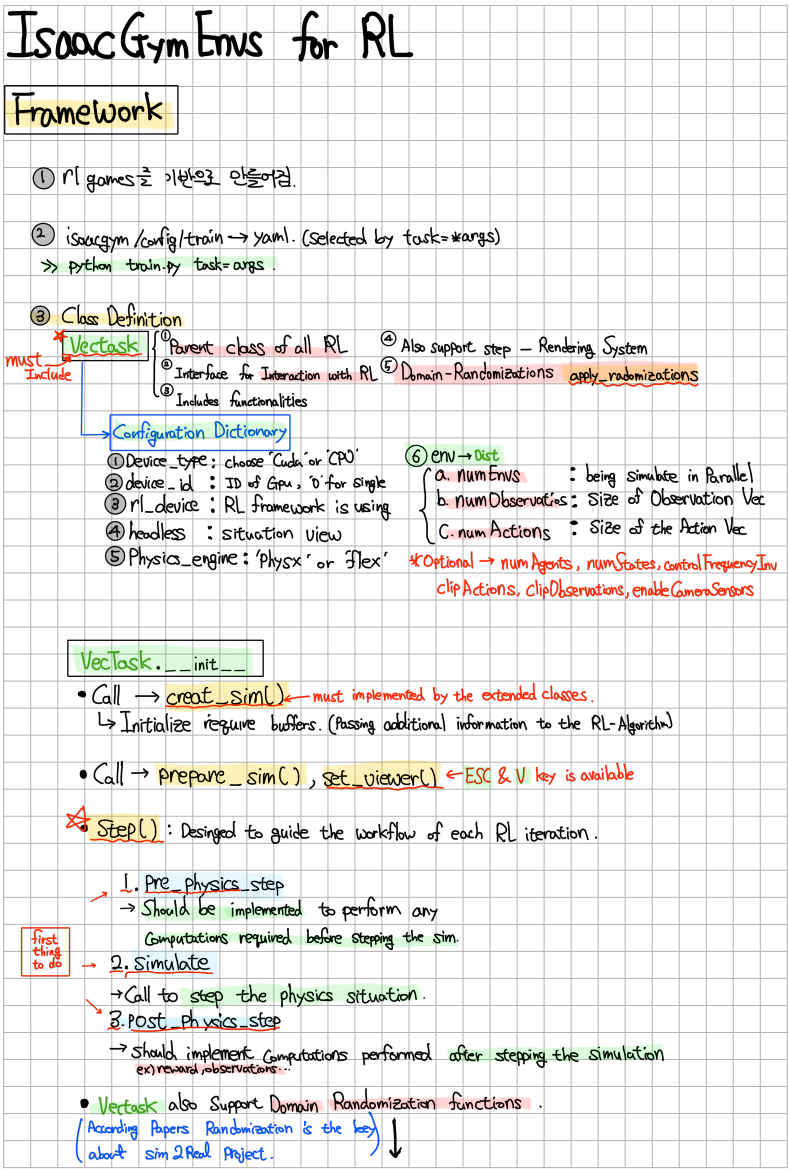 IsaacGymEnvs for RL
Framework
① rl games를 기반으로 만들어짐.
② isaacgym/config/train → yaml. (Selected by task=*args)
>> python train.py task=args.
③ Class Definition
Vectask
must Include
① Parent class of all RL
② Interface for Interaction with RL
③ Includes functionalities
④ Also support step – Rendering System
⑤ Domain-Randomizations apply_radomizations
Configuration Dictionary
① Device_type : choose 'Cuda' or 'CPU'
② device_id : ID of Gpu, '0' for single
③ rl_device : RL framework is using
④ headless : situation view
⑤ Physics_engine : 'Physx' or 'flex'
⑥ env → Dist
a. numEnvs : being simulate in Parallel
b. numObservatios : Size of Observation Vec
C. numActions : Size of the Action Vec
*Optional → numAgents, numStates, controlFrequencyInv
clipActions, clipObservations, enableCameraSensors
VecTask.__init__
• Call → creat_sim() ← must implemented by the extended classes.
↳ Initialize require buffers. (Passing additional information to the RL-Algorithm)
• Call → prepare_sim(), set_viewer() ← ESC & V key is available
• Step() : Desinged to guide the workflow of each RL iteration.
first thing to do
1. Pre_physics_step
→ Should be implemented to perform any
Computations required before stepping the sim.
2. simulate
→ Call to step the physics situation.
3. Post_physics_step
→ Should implement Computations performed after stepping the simulation
ex) reward, observations...
• Vectask also Support Domain Randomization functions.
(According Papers Randomization is the key
about sim2Real Project.) ↓